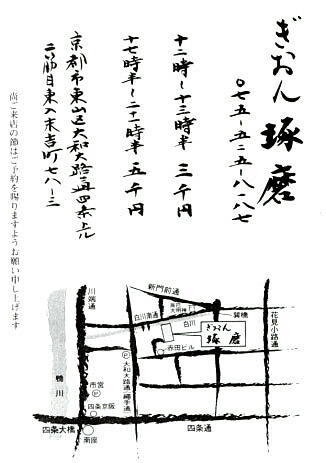 ぎおん 琢磨
〇七五-五二五-八一八七
十二時〜十三時半 三千円
十七時半〜二十一時半 五千円
京都市東山区大和大路通四条上ル
二筋目東入末吉町七八-三
尚ご来店の節はご予約を賜りますようお願い申し上げます
新門前通
川端通
白川南通
大明神
白川
巽橋
花見小路通
ぎおん
琢磨
赤田ビル
大和大路通(縄手通)
P
鴨川
市営
P
四条京阪
四条大橋
南座
四条通